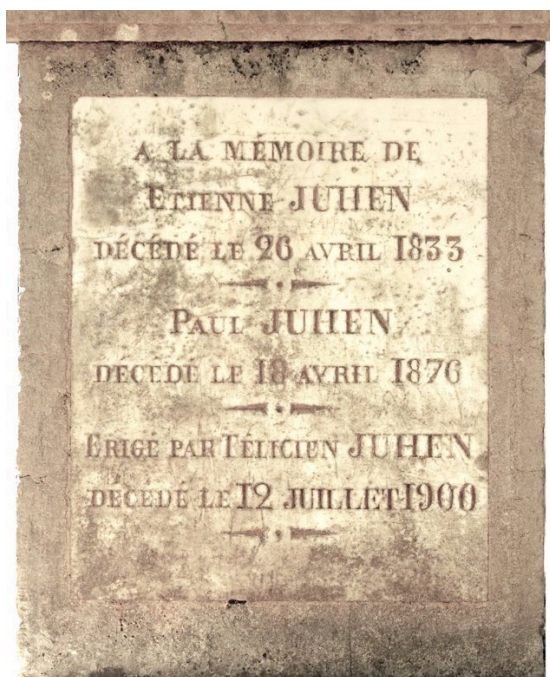 A LA MÉMOIRE DE
ETIENNE JUHEN
DÉCÉDÉ LE 26 AVRIL 1833
PAUL JUHEN
DÉCÉDÉ LE 18 AVRIL 1876
ERIGÉ PAR FÉLICIEN JUHEN
DÉCEDÉ LE 12 JUILLET 1900